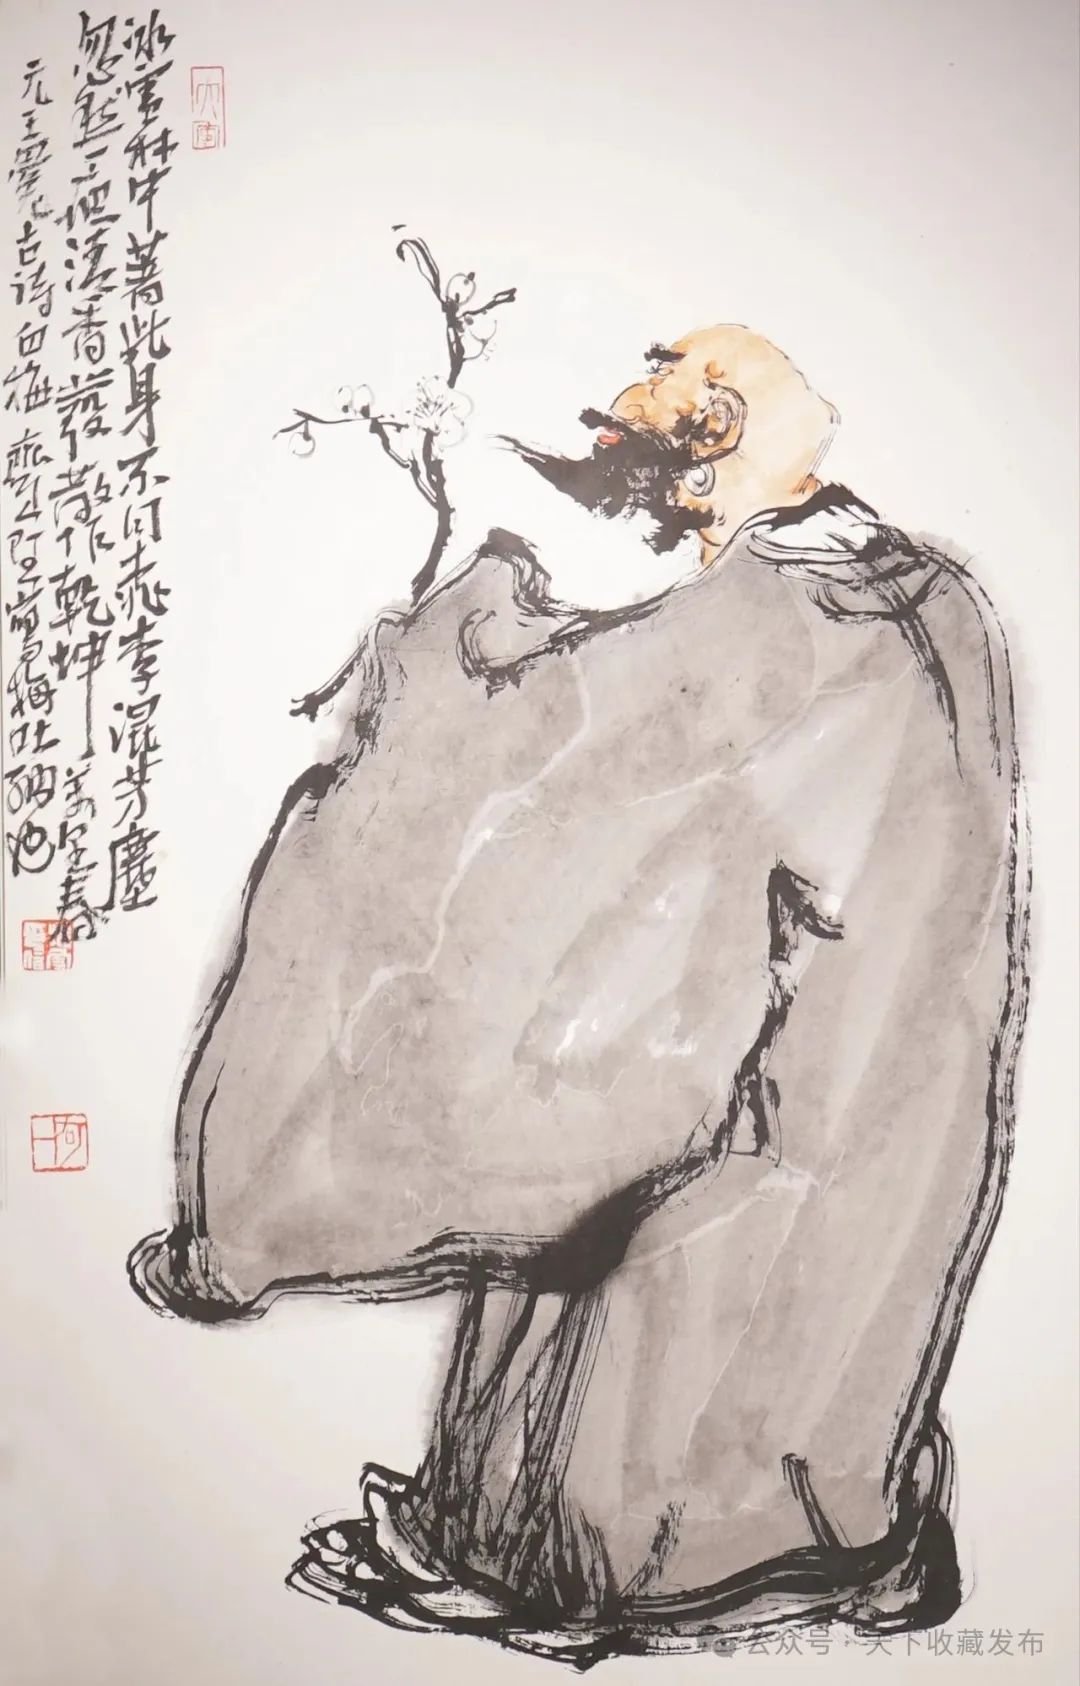 冰雪林中著此身不同桃李混芳塵
忽然一清香發散作乾坤萬里春
元王冕古詩白梅 梅吐納也
公众号·天下收藏发布